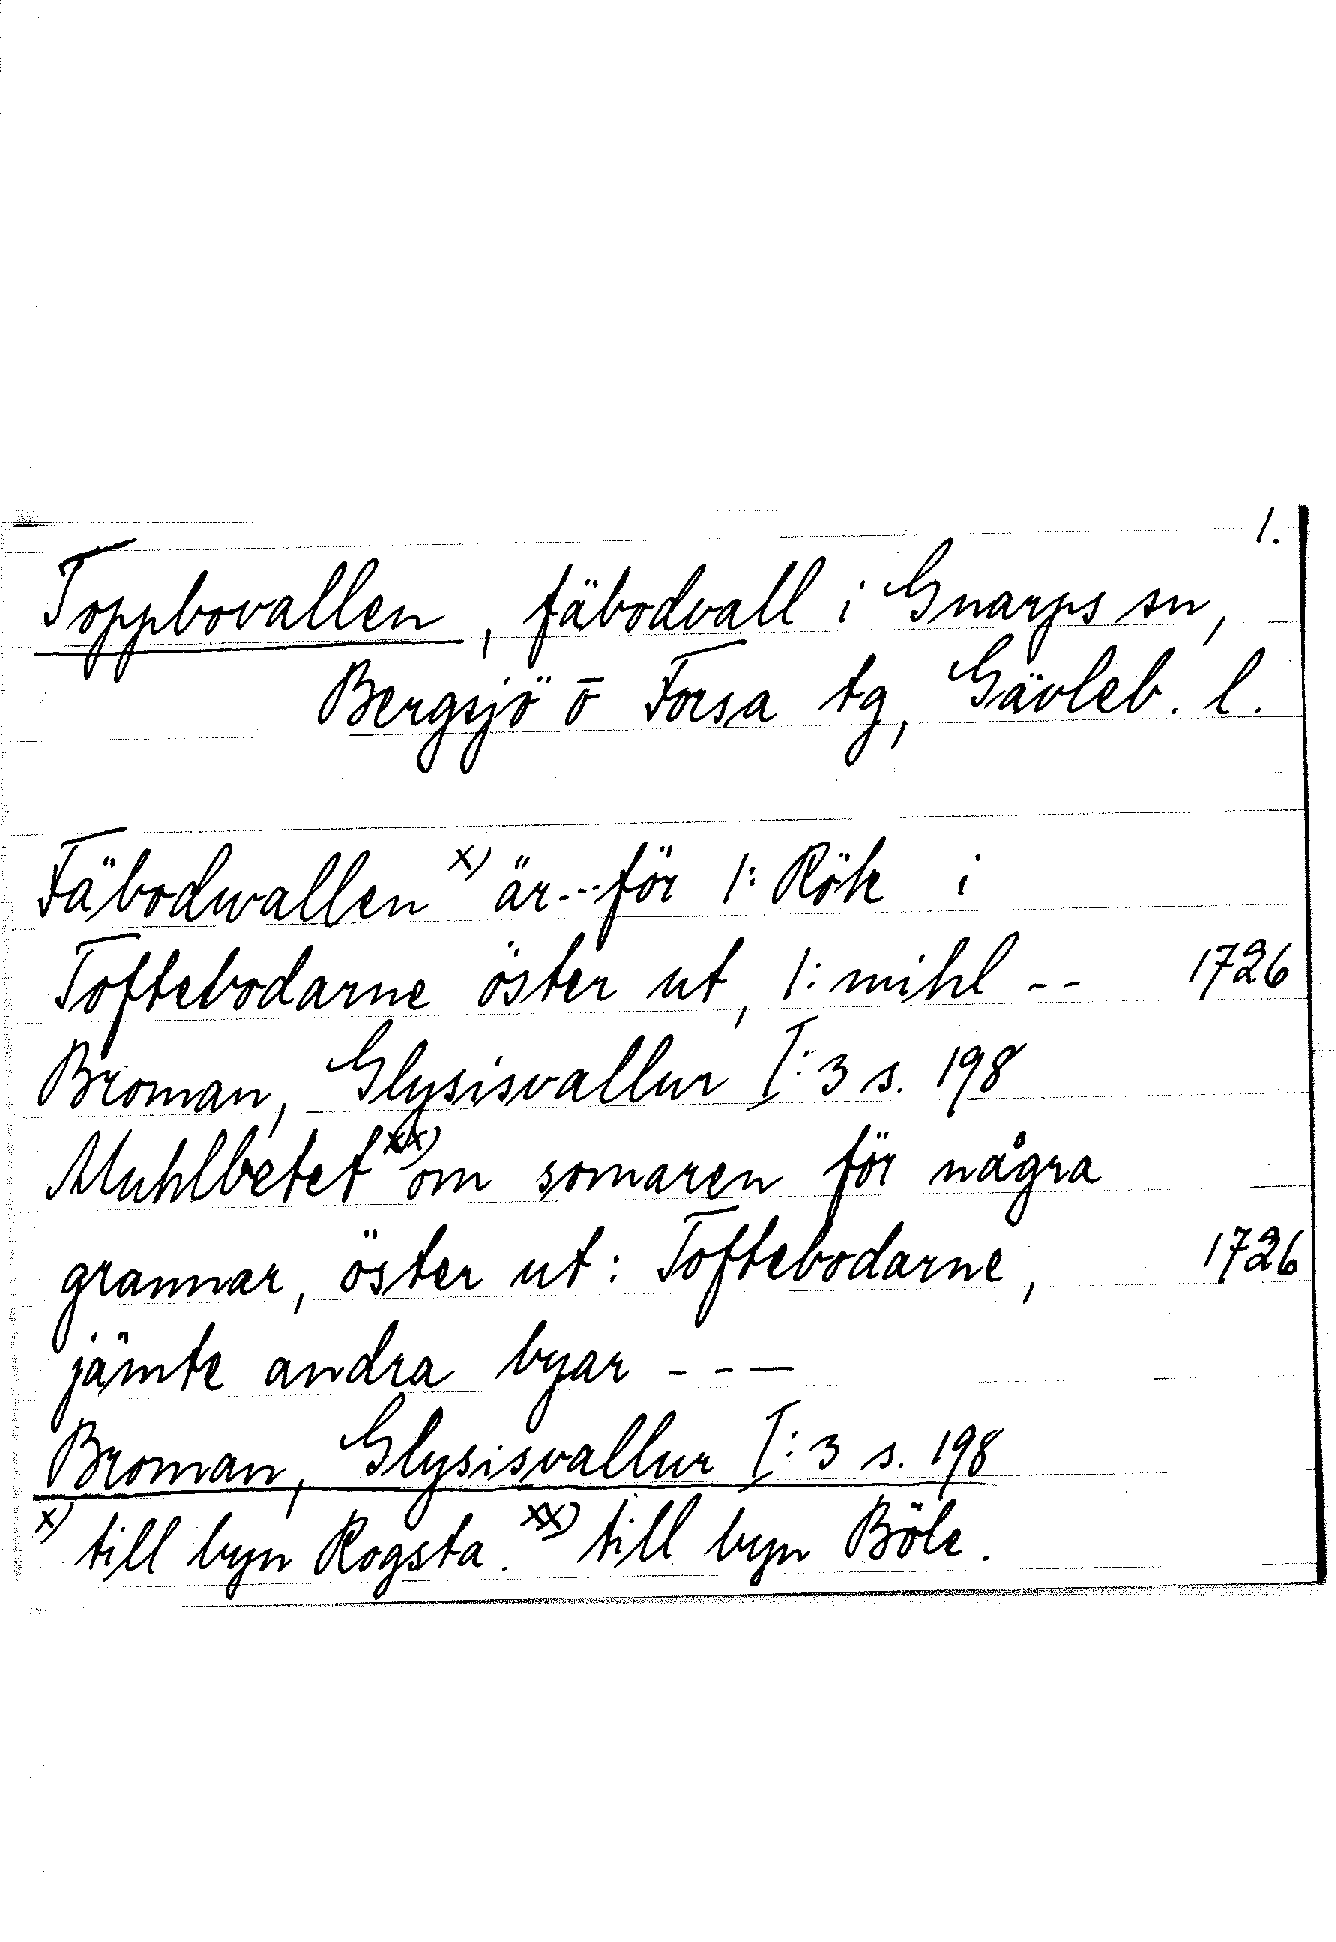 1.
Toppbovallen, fäbodvall i Gnarps sn,
Bergsjö o Forsa tg, Gävleb. l.
Fäbodwallen x) är--för 1: Rök i
Toftebodarne öster ut, 1: mihl -- 1726
Broman, Glysisvallur I:3 s. 198
Muhlbetet xx) om somaren för några
grannar, öster ut: Toftebodarne, 1726
jämte andra byar ---
Broman, Glysisvallur I:3 s. 198
x) till byn Rogsta. xx) till byn Böle.